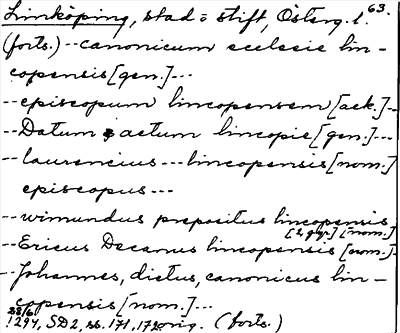 Linköping, stad o stift, Österg. l. 63.
(forts.) -- canonicum ecclesie lin-
copensis [gen.] ---
-- episcopum lincopensem [ack.] --
-- Datum & actum lincopie [gen.] ---
-- laurencius --- lincopensis [nom.]
episcopus ---
-- wimundus prepositus lincopensis
[2 ggr.] [nom.]
-- Ericus Decanus lincopensis [nom.] --
-- Johannes, dictus, canonicus lin-
copensis [nom.] ---
28/6
1294, SD 2, s. 171, 172 orig. (forts.)